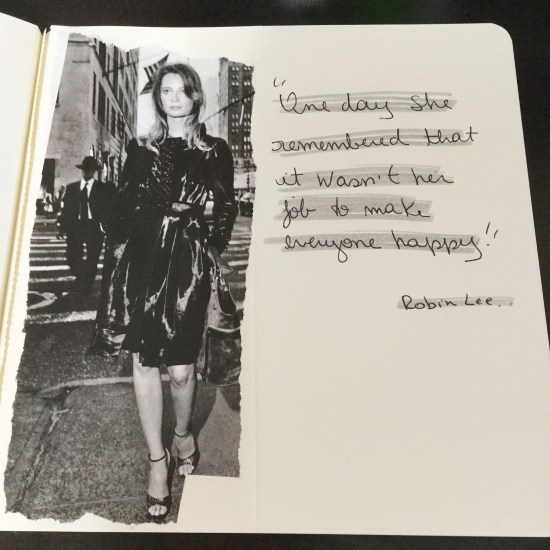 "One day she
remembered that
it wasn't her
job to make
everyone happy"
Robin Lee.